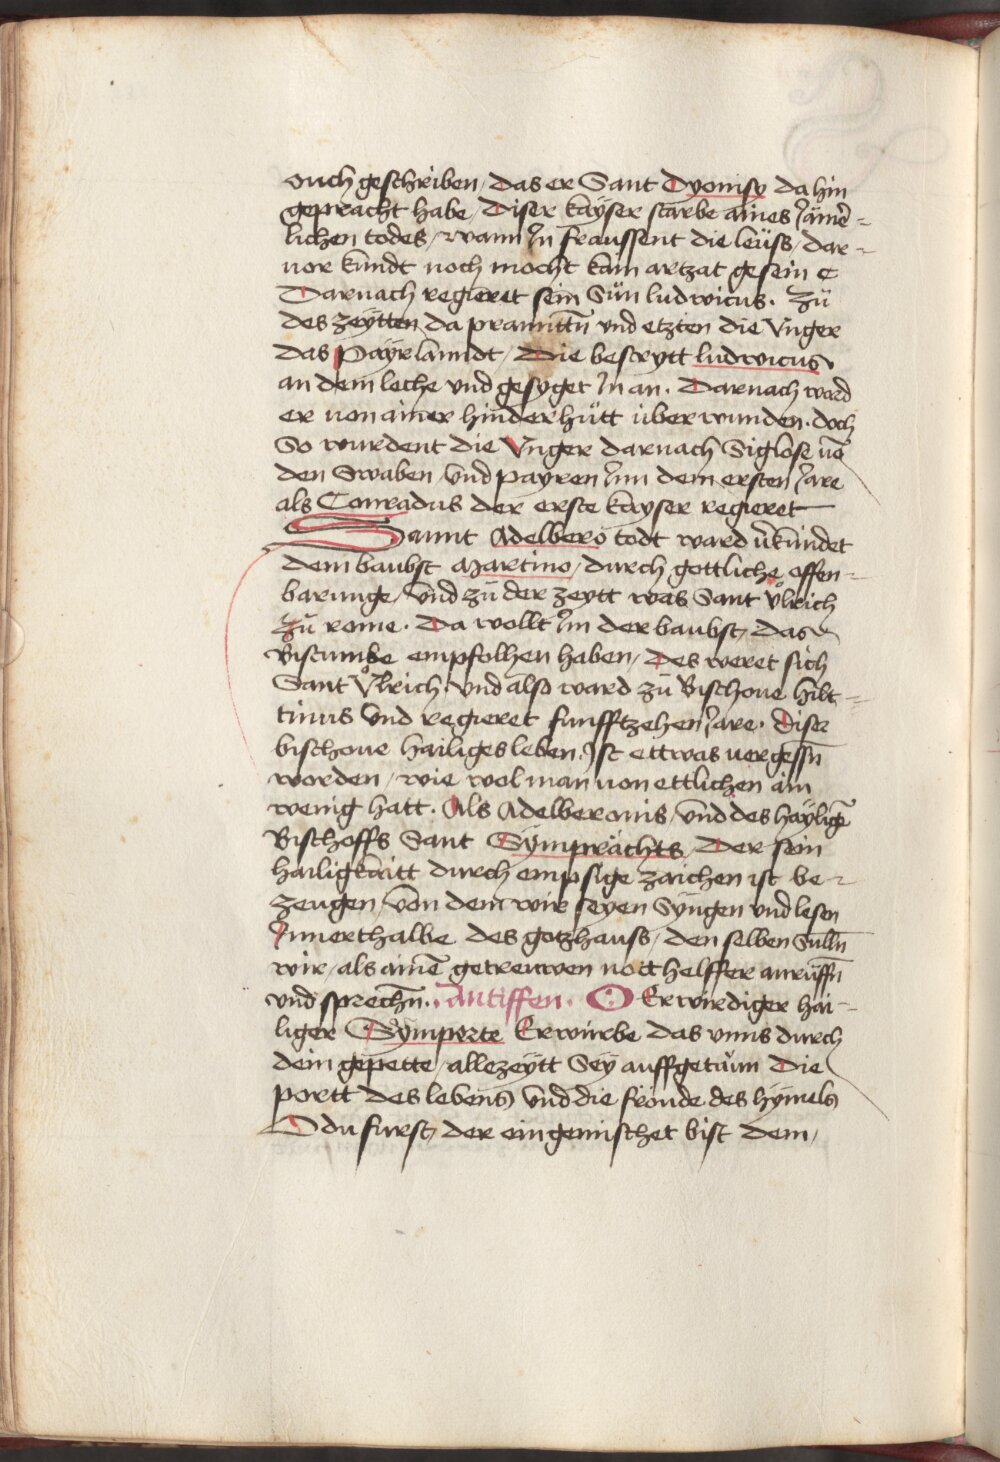 vnch geschriben / das er Sant Dyonisy da hin
gepracht habe / Diser kayser starbe aines Jämer-
lichen todes / wann Jn fraussent die leüss / dar-
vor kundt noch mocht kain artzat gesein
Darnach regieret sein Sün ludwicus. Zü
des zeytten da pranittn vnd etzten die Vnger
das Payrlanndt / Die bestrytt ludwicus
an dem leche vnd gesyget Jn an. Darnach ward
er von ainer hinderhütt überwunden. doch
So wurdent die Vnger darnach Siglose vō
den Swaben / vnd payren Jnn dem ersten Jare
als Conradus der erste kayser regieret
Sannt Adelbero todt ward v̄kündet
dem baubst Martino / durch gottliche offen-
barunge / Vnd zü der zeytt was Sant Vͦlrich
zü rome. Da wollt Jm der baubst / das
Bistumbe empfolhen haben / Des weret sich
Sant Vͦlrich. vnd also ward zü Bischoue hilt-
tinus Vnd regieret funfftzehen Jare. Diser
bischoue hailiges leben. Jst ettwas vergessn̄
worden / wie wol man von ettlichen ain
wenig hatt. Als Adelberonis / vnd des hayligē
Bischoffs Sant Symprächts / Der sein
hailigkaitt durch empsige zaichen ist be-
zeugen / von dem wir seyen Syngen vnd lesen
Jnnerthalbe des gotzhauss / den selben Sülln̄
wir / als ainē getreuwen notthelffer anrüffn̄
vnd sprechn̄. Antiffen. O Erwirdiger hai-
liger Symperte Erwürbe das vnns durch
dein gepette / allezeytt Sey auffgetünn Die
portt des lebens Vnd die frönde des hymels
O du furst / der eingemischet bist dem /